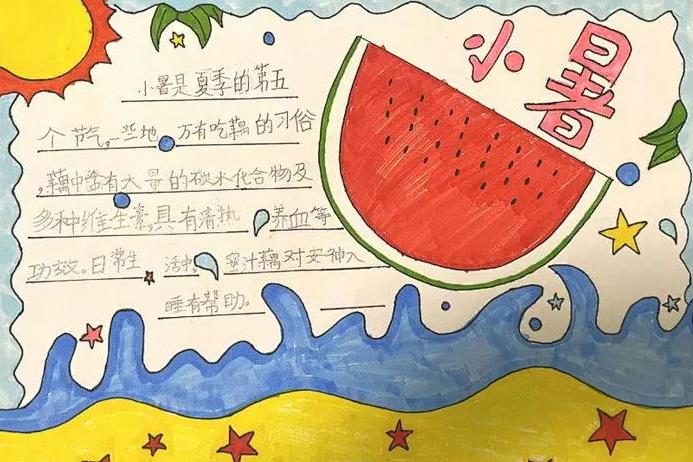 小暑
小暑是夏季的第五
个节气,一些地万有吃藕的习俗
,藕中含有大量的碳水化合物及
多种维生素,具有清热养血等
功效。日常生活中,蜜汁藕对安神入
睡有帮助。